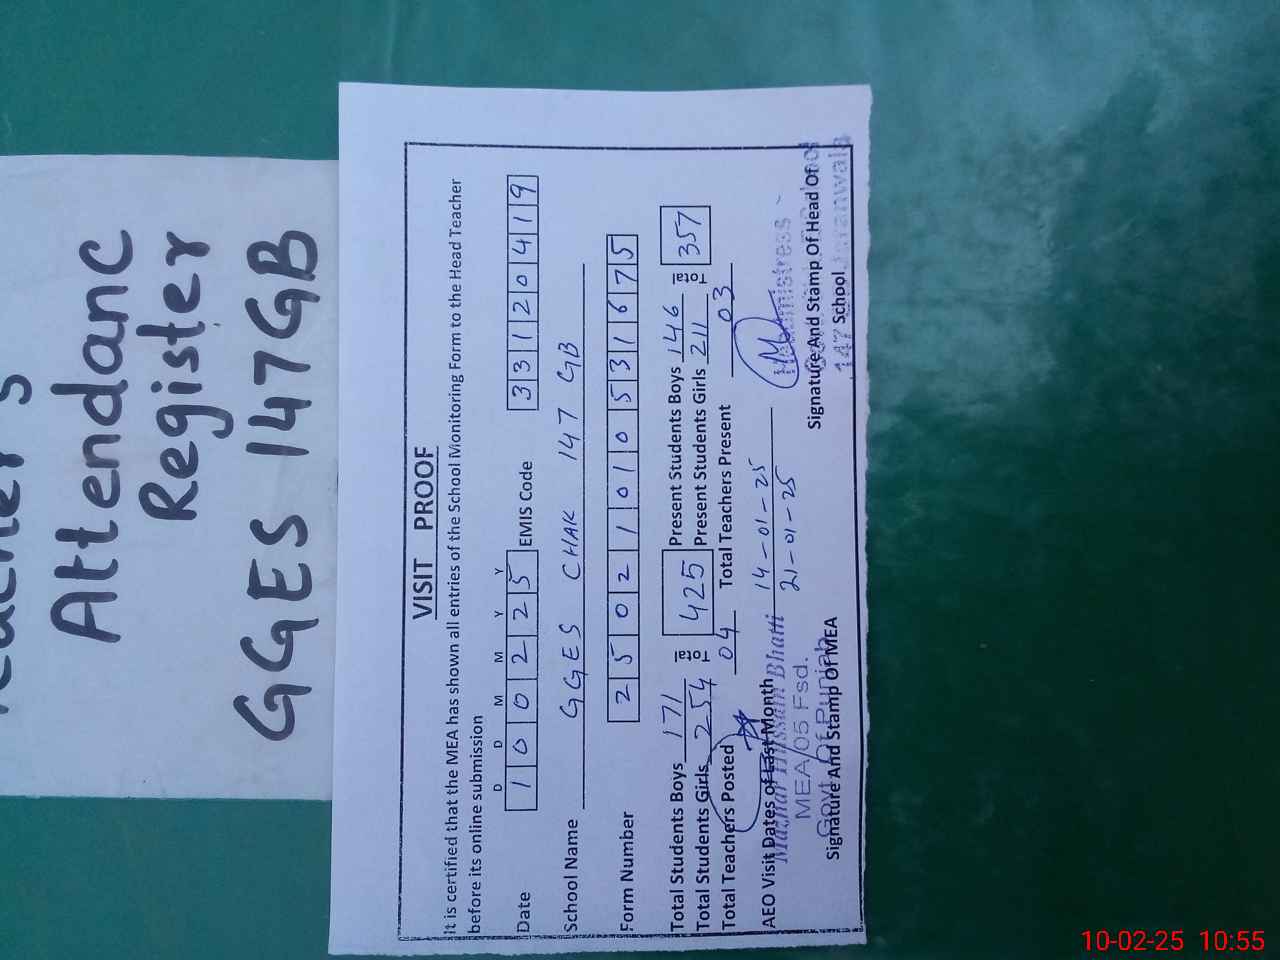 Attendanc
Register
GGES 147GB
VISIT PROOF
It is certified that the MEA has shown all entries of the School Monitoring Form to the Head Teacher
before its online submission
D D M M Y Y
Date 100225 EMIS Code 33120419
School Name GGES CHAK 147 GB
Form Number 25021010531675
Total Students Boys 171 Present Students Boys 146
Total Students Girls 254 کل 425 Present Students Girls 211 کل 357
Total Teachers Posted 04 Total Teachers Present 03
AEO Visit Dates of Last Month 14-01-25
21-01-25
Mazhar Hussain Bhatti
MEA/05 Fsd.
Govt. Of Punjab
Signature And Stamp Of MEA
Headmistress
Signature And Stamp Of Head Of
School
147 Jaranwala
10-02-25 10:55